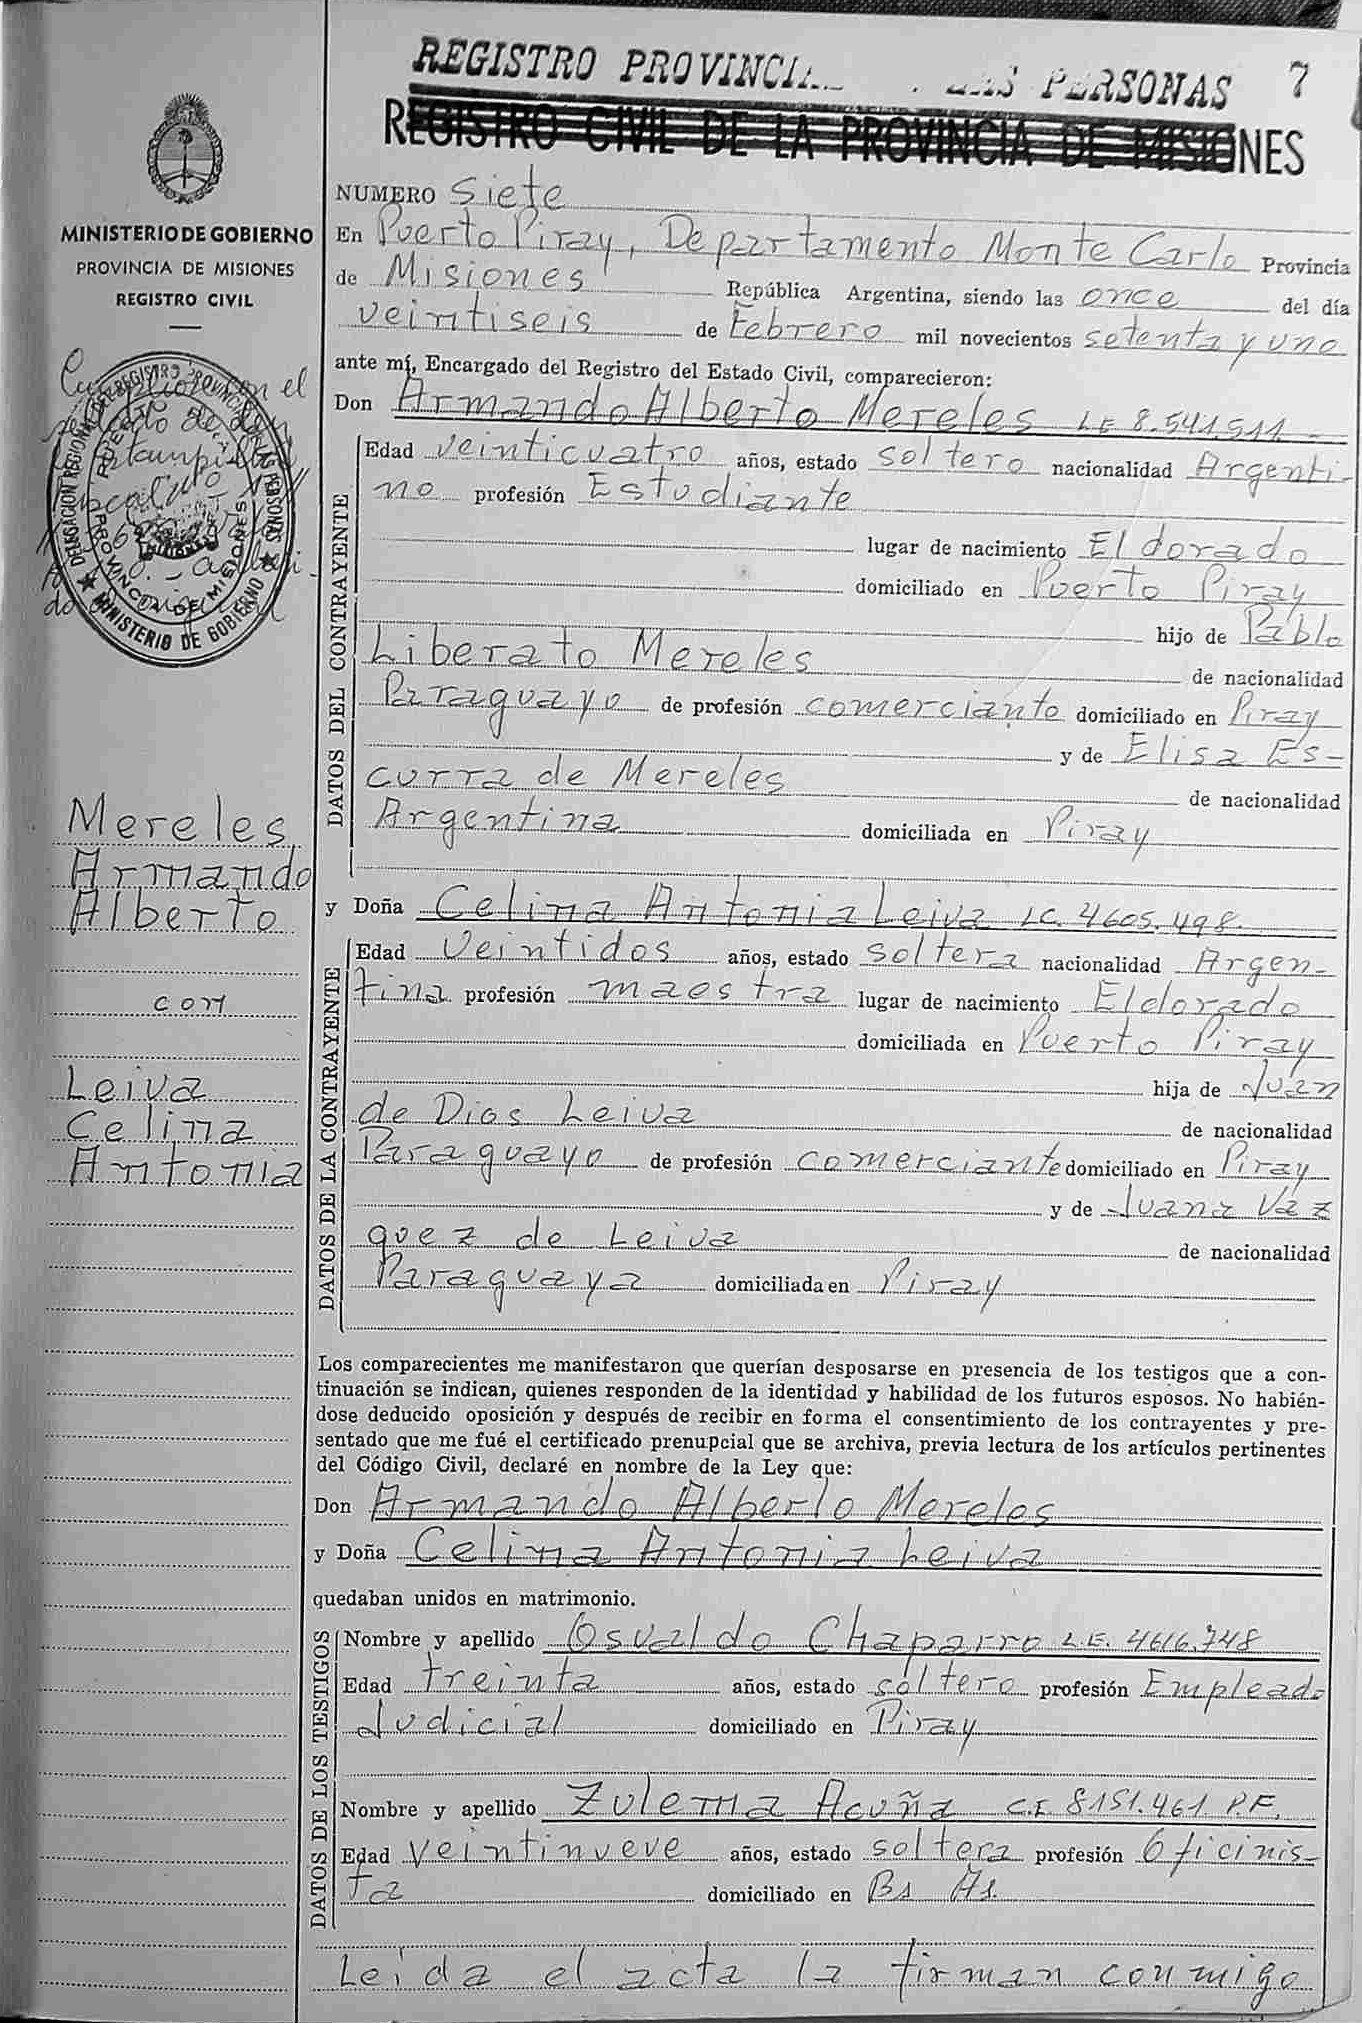 REGISTRO PROVINCIA LAS PERSONAS 7
REGISTRO CIVIL DE LA PROVINCIA DE MISIONES
MINISTERIO DE GOBIERNO
PROVINCIA DE MISIONES
REGISTRO CIVIL
NUMERO Siete
En Puerto Piray, Departamento Monte Carlo Provincia
de Misiones República Argentina, siendo las once del día
veintiseis de Febrero mil novecientos setenta y uno
ante mí, Encargado del Registro del Estado Civil, comparecieron:
Don Armando Alberto Mereles LE 8.541.511.-
DATOS DEL CONTRAYENTE
Edad veinticuatro años, estado soltero nacionalidad Argenti-
no profesión Estudiante
lugar de nacimiento Eldorado
domiciliado en Puerto Piray
hijo de Pablo
Liberato Mereles de nacionalidad
Paraguayo de profesión comerciante domiciliado en Piray
y de Elisa Es-
curra de Mereles de nacionalidad
Argentina domiciliada en Piray
y Doña Celina Antonia Leiva LC. 4605.498.
DATOS DE LA CONTRAYENTE
Edad Veintidos años, estado soltera nacionalidad Argen-
tina profesión maestra lugar de nacimiento Eldorado
domiciliada en Puerto Piray
hija de Juan
de Dios Leiva de nacionalidad
Paraguayo de profesión comerciante domiciliado en Piray
y de Juana Vaz
quez de Leiva de nacionalidad
Paraguaya domiciliada en Piray
Los comparecientes me manifestaron que querían desposarse en presencia de los testigos que a con-
tinuación se indican, quienes responden de la identidad y habilidad de los futuros esposos. No habién-
dose deducido oposición y después de recibir en forma el consentimiento de los contrayentes y pre-
sentado que me fué el certificado prenupcial que se archiva, previa lectura de los artículos pertinentes
del Código Civil, declaré en nombre de la Ley que:
Don Armando Alberto Mereles
y Doña Celina Antonia Leiva
quedaban unidos en matrimonio.
DATOS DE LOS TESTIGOS
Nombre y apellido Osvaldo Chaparro L.E. 4616.748
Edad treinta años, estado soltero profesión Empleado
Judicial domiciliado en Piray
Nombre y apellido Zulema Acuña C.I. 8151.461. P.F.
Edad veintinueve años, estado soltera profesión Oficinis-
ta domiciliado en Bs As.
Leida el acta la firman conmigo
Mereles
Armando
Alberto
con
Leiva
Celina
Antonia
DELEGACION REGIONAL DEL REGISTRO PROVINCIAL DE LAS PERSONAS
MINISTERIO DE GOBIERNO
PROVINCIA DE MISIONES